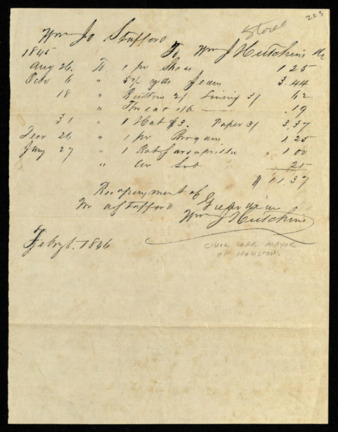 223
Store
Wm Jo Stafford
1845 To Wm J Hutchins Dr
Aug 26, To 1 pr Shoes 1 25
Octr 6 " 5½ yds Jean 3.44
18 " Buttons 2/ Lining 3/ 62
" Thread 19
31 " 1 Hat $3. Paper 3/ 3.37
26 " 1 pr Brogans 1.25
Jany 27 " 1 Bot Sarsaparilla 1 00
" 25
$ 11 37
Recd payment of
Wm Jo Stafford Guardian
Wm J Hutchins
Feby 6. 1846
Civil War Mayor
of Houston